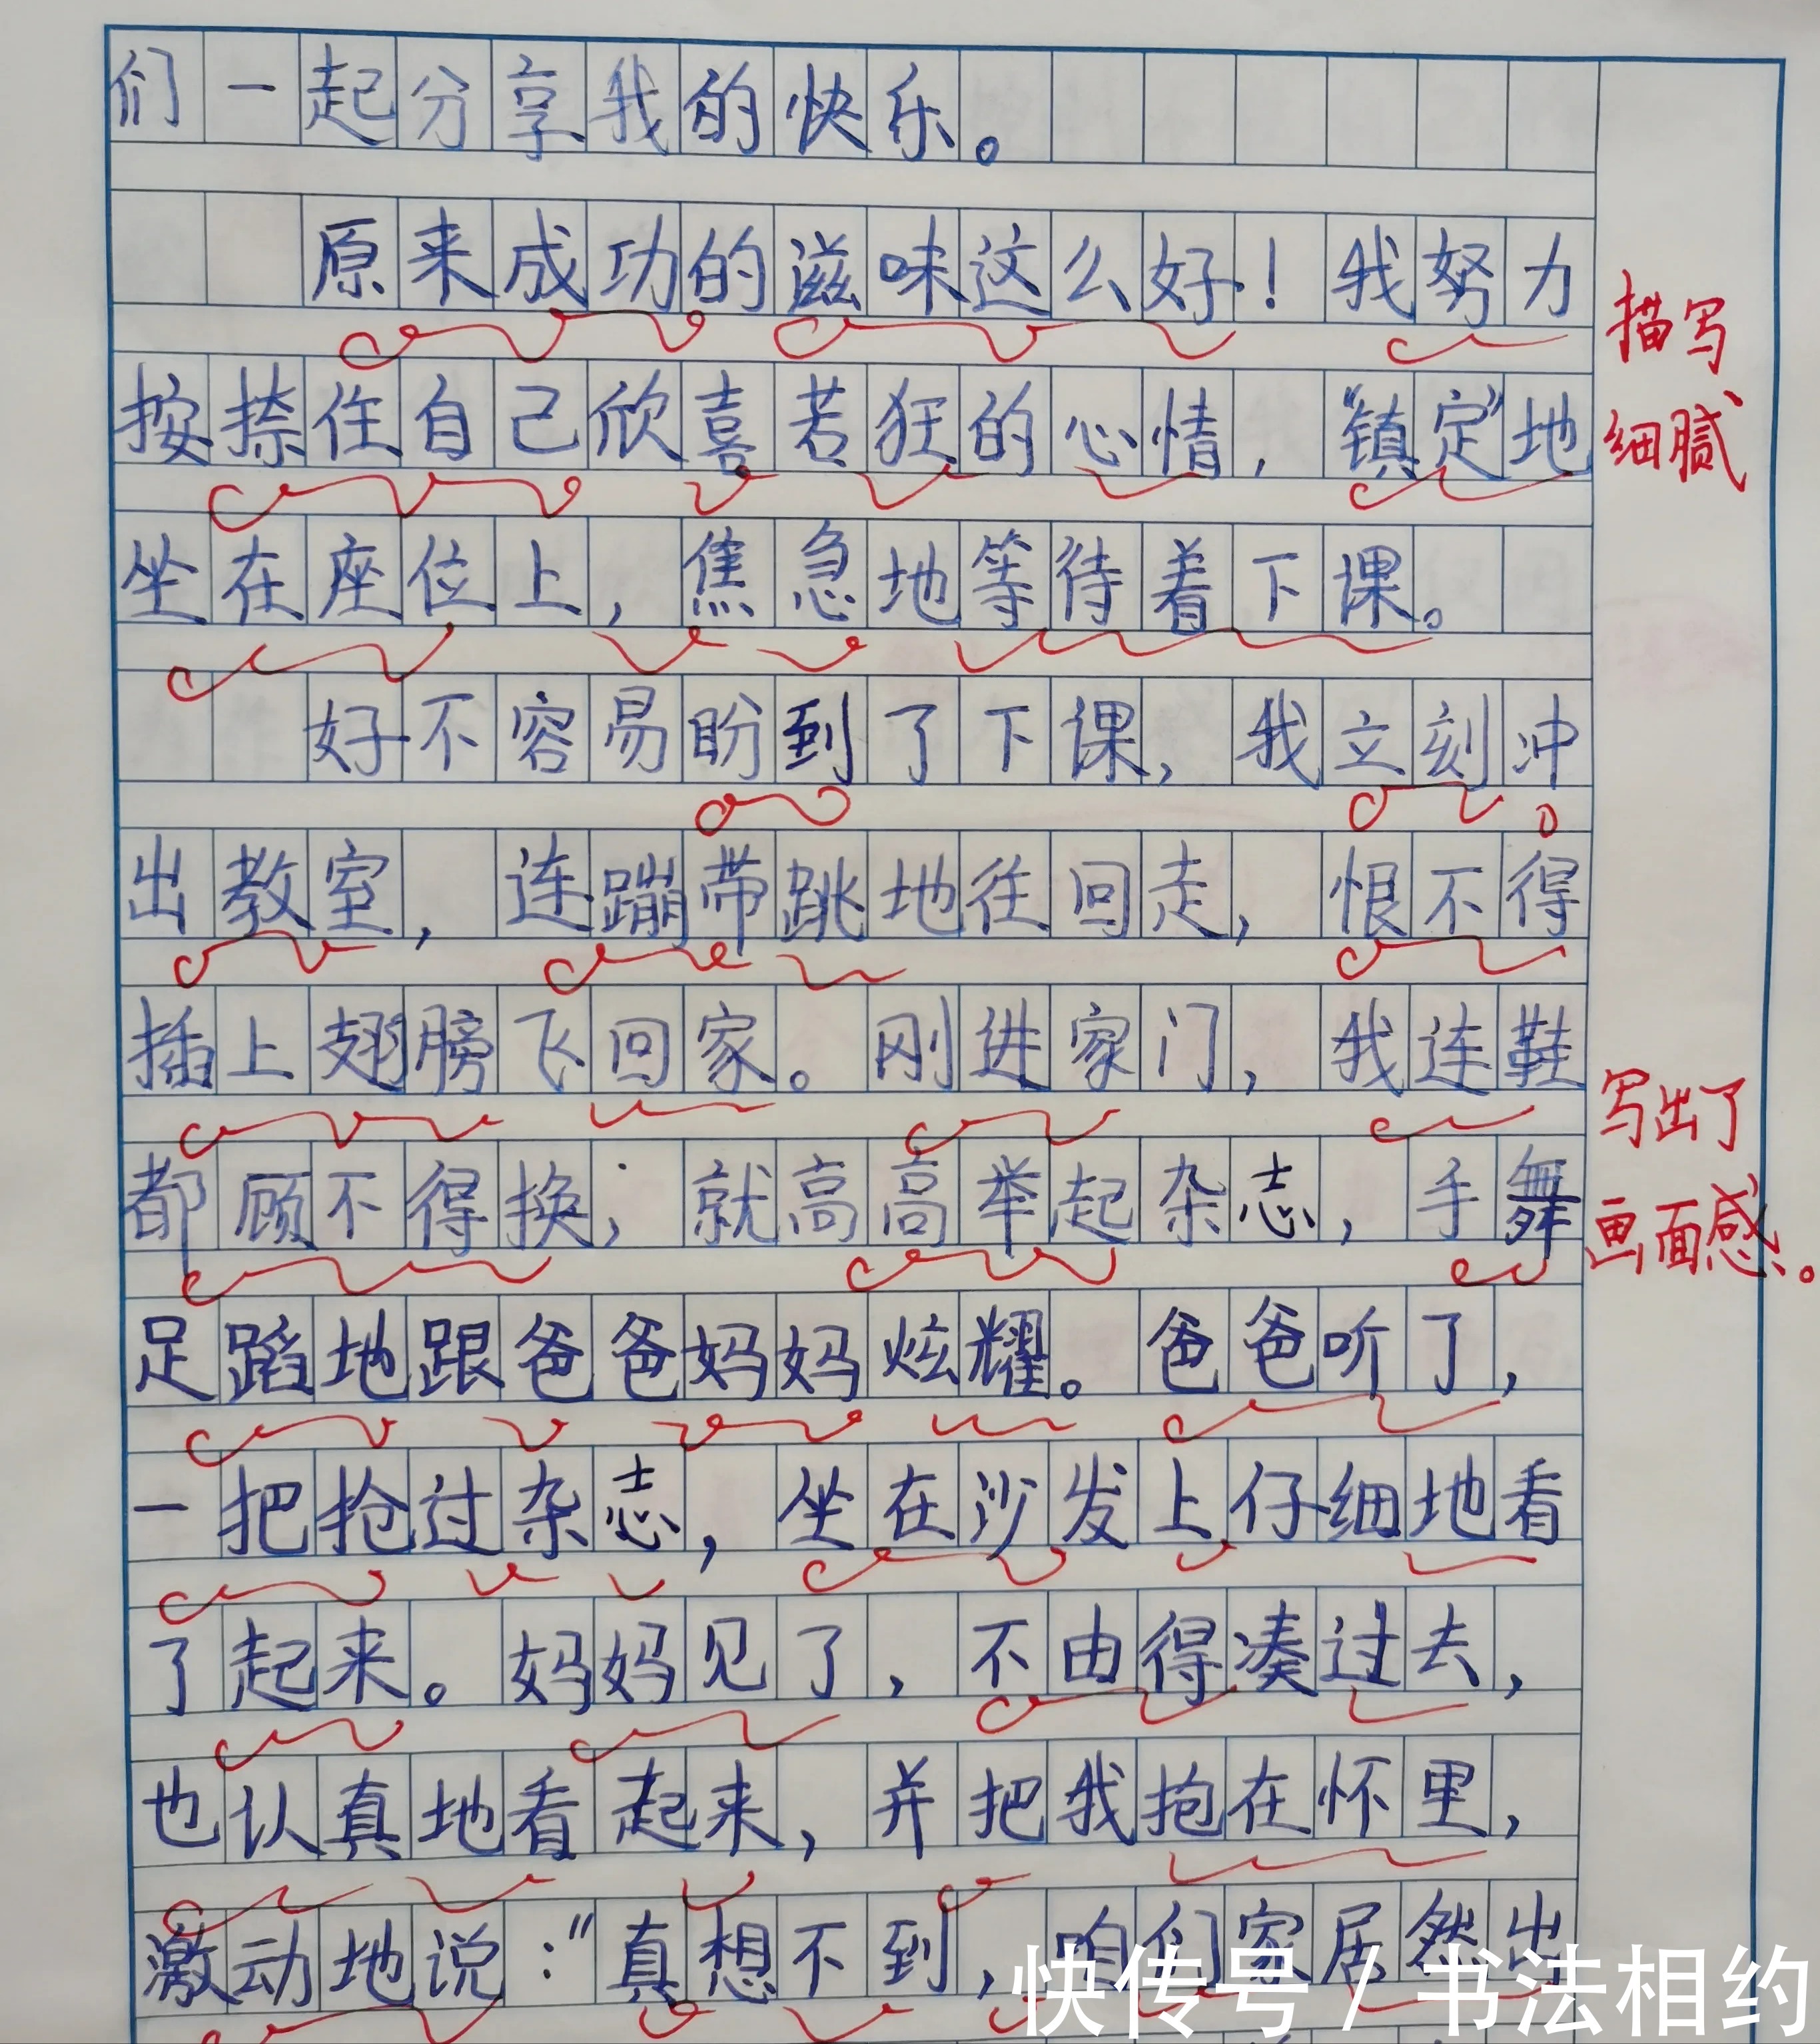 们一起分享我的快乐。
原来成功的滋味这么好！我努力
描写
按捺住自己欣喜若狂的心情，“镇定”地
细腻
坐在座位上，焦急地等待着下课。
好不容易盼到了下课，我立刻冲
出教室，连蹦带跳地往回走，恨不得
插上翅膀飞回家。刚进家门，我连鞋
写出了
都顾不得换；就高高举起杂志，手舞
画面感。
足蹈地跟爸爸妈妈炫耀。爸爸听了，
一把抢过杂志，坐在沙发上仔细地看
了起来。妈妈见了，不由得凑过去，
也认真地看起来，并把我抱在怀里，
激动地说：“真想不到，咱们家居然出
快传号/书法相约